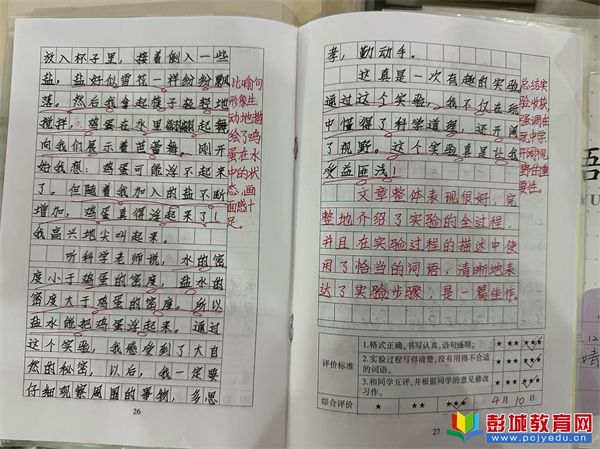 放入杯子里，接着倒入一些
盐，盐好似雪花一样纷纷飘
落。然后我拿起筷子轻轻地
搅拌，鸡蛋在水里翩翩起舞
向我们展示着芭蕾舞。刚开
始我想：鸡蛋可能浮不起来
了。但随着我加入的盐不断
增加，鸡蛋真得浮起来了！
我高兴地尖叫起来。
听科学老师说，水的密
度小于鸡蛋的密度，盐水的
密度大于鸡蛋的密度。所以
盐水能把鸡蛋浮起来。通过
这个实验，我感受到了大自
然的秘密，以后，我一定要
仔细观察周围的事物，多思
比喻句
形象生
动地描
绘了鸡
蛋在水
中的状
态，画
面感十
足。
26
考，勤动手。
这真是一次有趣的实验
通过这个实验，我不仅在玩
中懂得了科学道理，还开阔
了视野。这个实验真是让我
受益匪浅！
总结实
验收获
强调在
玩中学
开阔视
野的重
要性。
文章整体表现很好，完
整地介绍了实验的全过程，
并且在实验过程的描述中使
用了恰当的词语，清晰地表
达了实验步骤，是一篇佳作。
评价标准
1.格式正确，书写认真，语句通顺。
★ ★★ ★★★
2.实验过程写得清楚，没有用得不合适
的词语。
★ ★★ ★★★
3.和同学互评，并根据同学的意见修改
习作。
★ ★★ ★★★
综合评价
★ ★★ ★★★
4月10日
27
语
YU
12
靖
彭城教育网
www.pcjyedu.cn